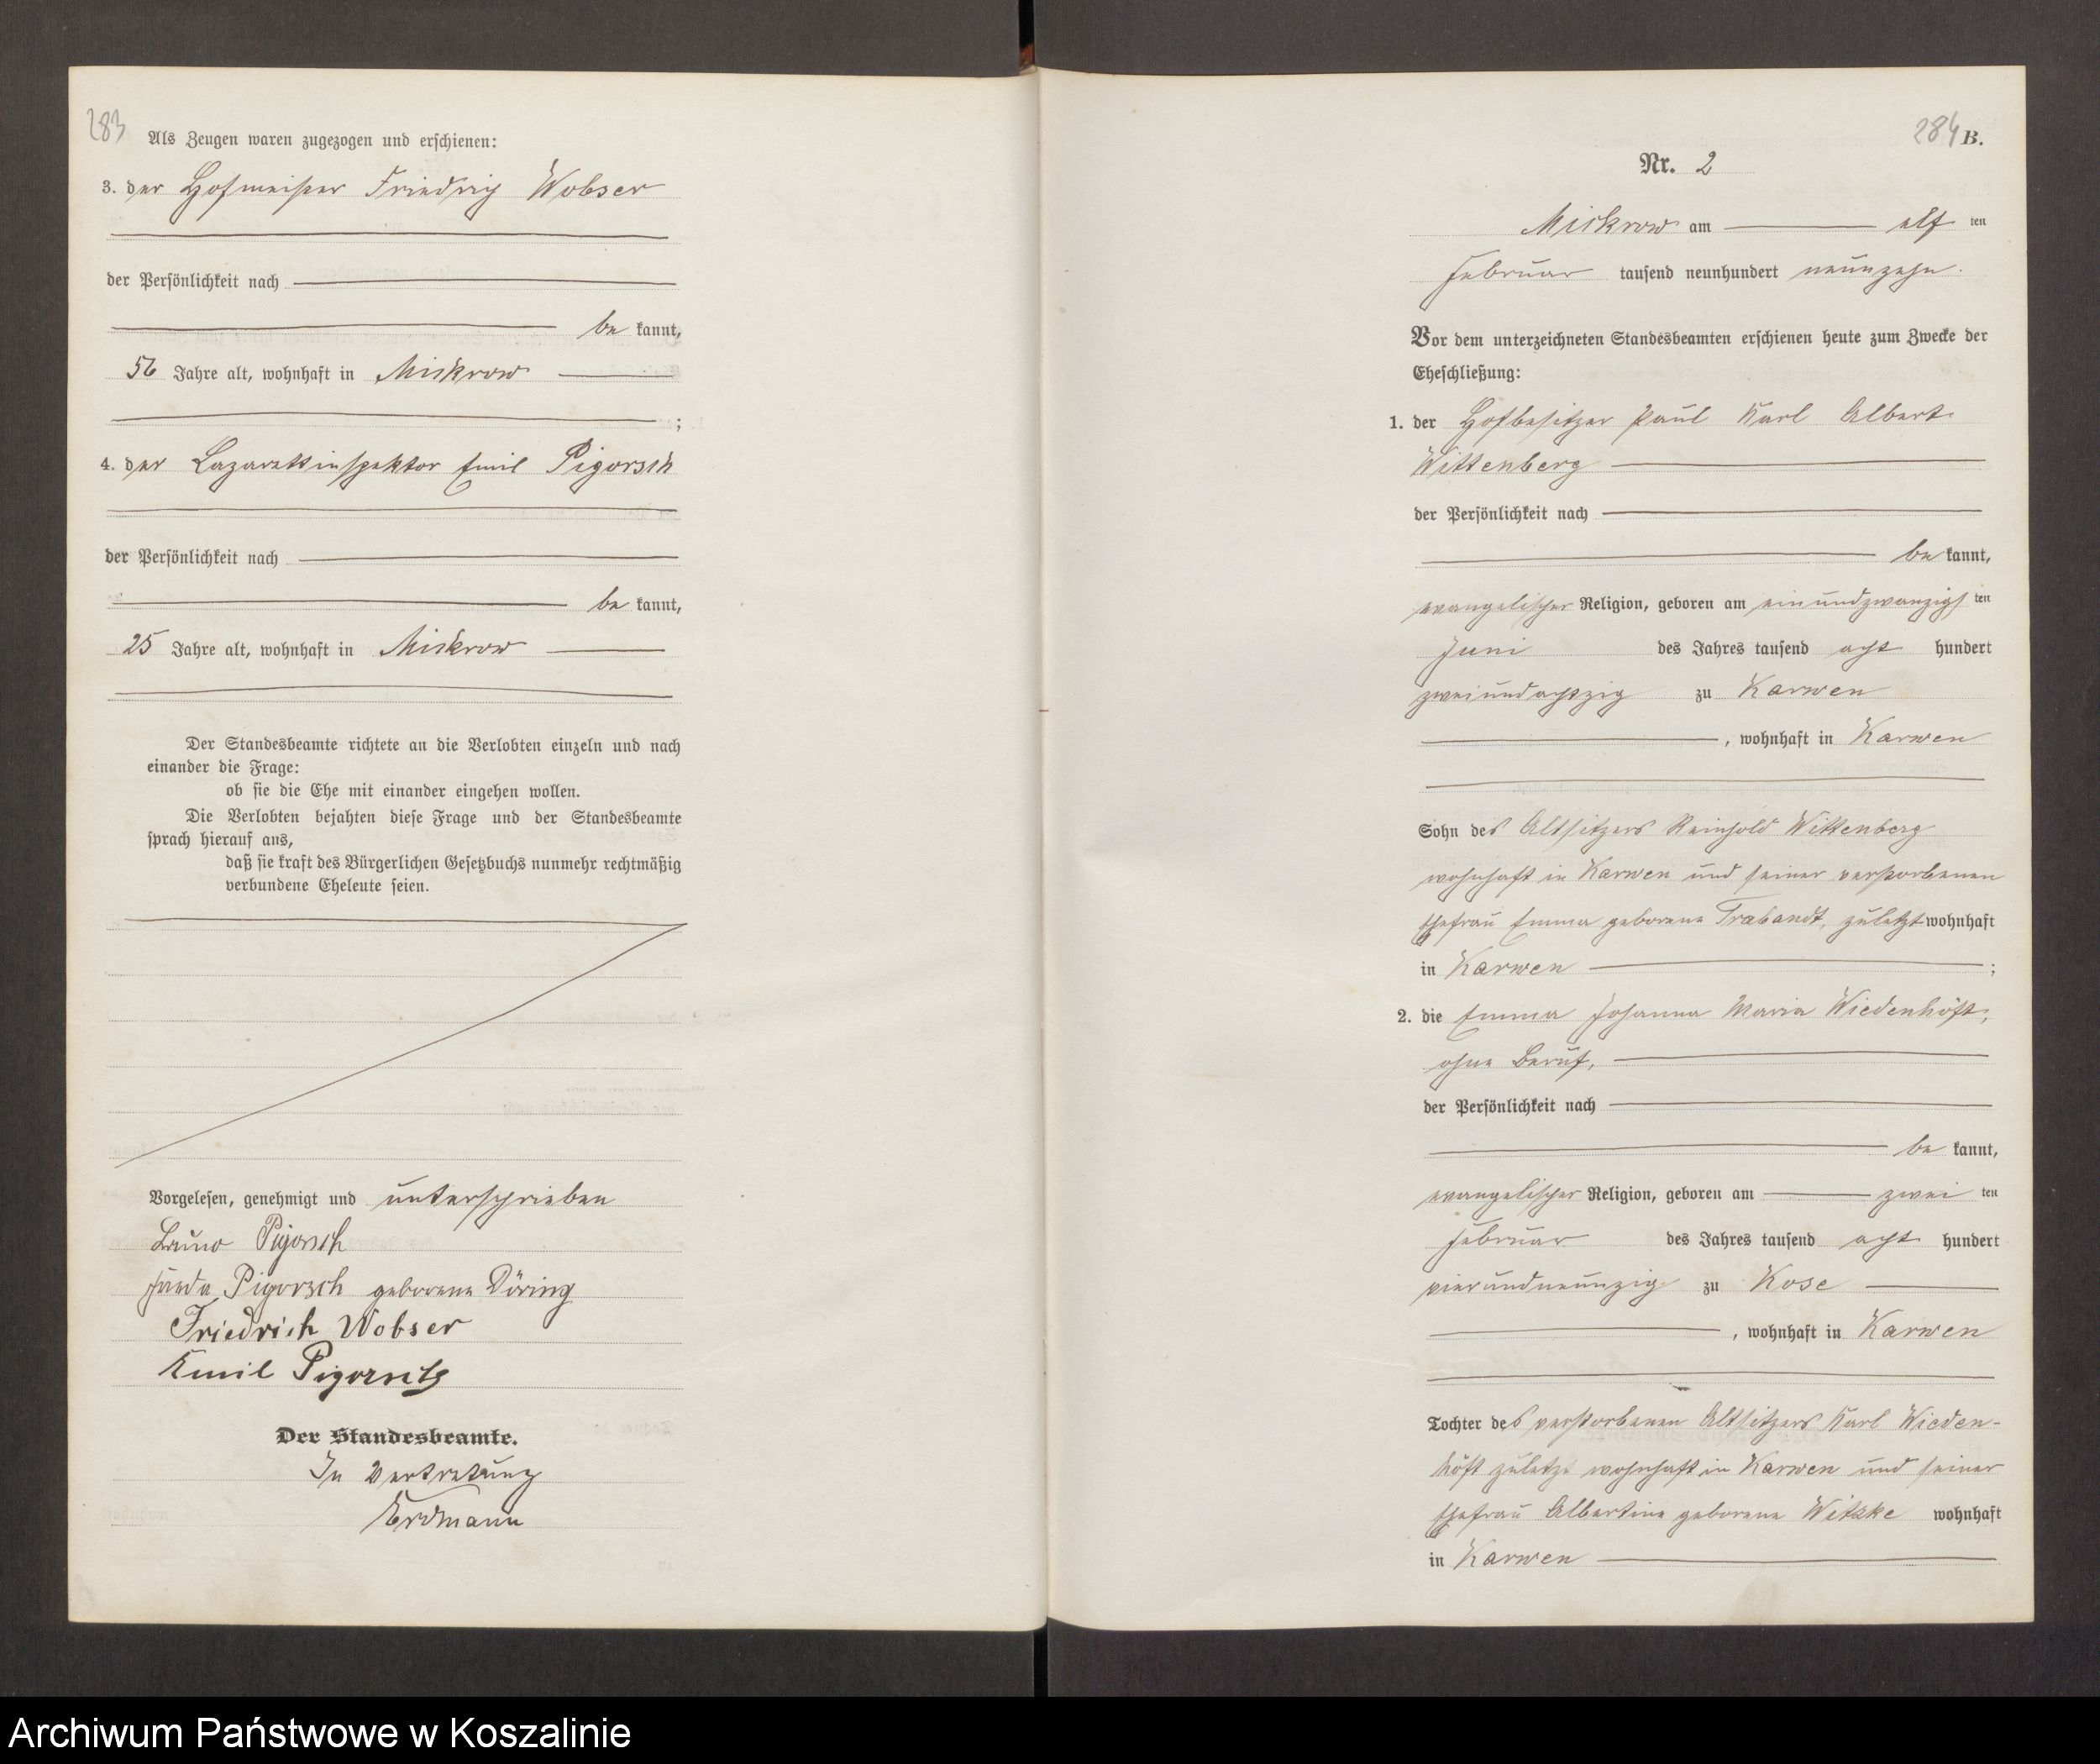 283
Als Zeugen waren zugezogen und erschienen:
3. der Hofmeister Friedrich Wobser
der Persönlichkeit nach
be kannt,
56 Jahre alt, wohnhaft in Mickrow
;
4. der Lazarettinspektor Emil Pigorsch
der Persönlichkeit nach
be kannt,
25 Jahre alt, wohnhaft in Mickrow
Der Standesbeamte richtete an die Verlobten einzeln und nach
einander die Frage:
ob sie die Ehe mit einander eingehen wollen.
Die Verlobten bejahten diese Frage und der Standesbeamte
sprach hierauf aus,
daß sie kraft des Bürgerlichen Gesetzbuchs nunmehr rechtmäßig
verbundene Eheleute seien.
Vorgelesen, genehmigt und unterschrieben
Bruno Pigorsch
Pigorsch geborene Döring
Friedrich Wobser
Emil Pigorsch
Der Standesbeamte.
In Vertretung
Erdmann
284 B.
Nr. 2
Mickrow am elf ten
Februar tausend neunhundert neunzehn.
Vor dem unterzeichneten Standesbeamten erschienen heute zum Zwecke der
Eheschließung:
1. der Hofbesitzer Paul Karl Albert
Wittenberg
der Persönlichkeit nach
be kannt,
evangelischer Religion, geboren am einundzwanzigs ten
Juni des Jahres tausend acht hundert
zweiundachtzig zu Karwen
, wohnhaft in Karwen
Sohn des Altsitzers Reinhold Wittenberg
wohnhaft in Karwen und seiner verstorbenen
Ehefrau Emma geborene Trabandt, zuletzt wohnhaft
in Karwen ;
2. die Emma Johanna Maria Wiedenhöft,
ohne Beruf,
der Persönlichkeit nach
be kannt,
evangelischer Religion, geboren am zwei ten
Februar des Jahres tausend acht hundert
vierundneunzig zu Kose
, wohnhaft in Karwen
Tochter des verstorbenen Altsitzers Karl Wieden-
höft zuletzt wohnhaft in Karwen und seiner
Ehefrau Albertine geborene Witzke wohnhaft
in Karwen
Archiwum Państwowe w Koszalinie